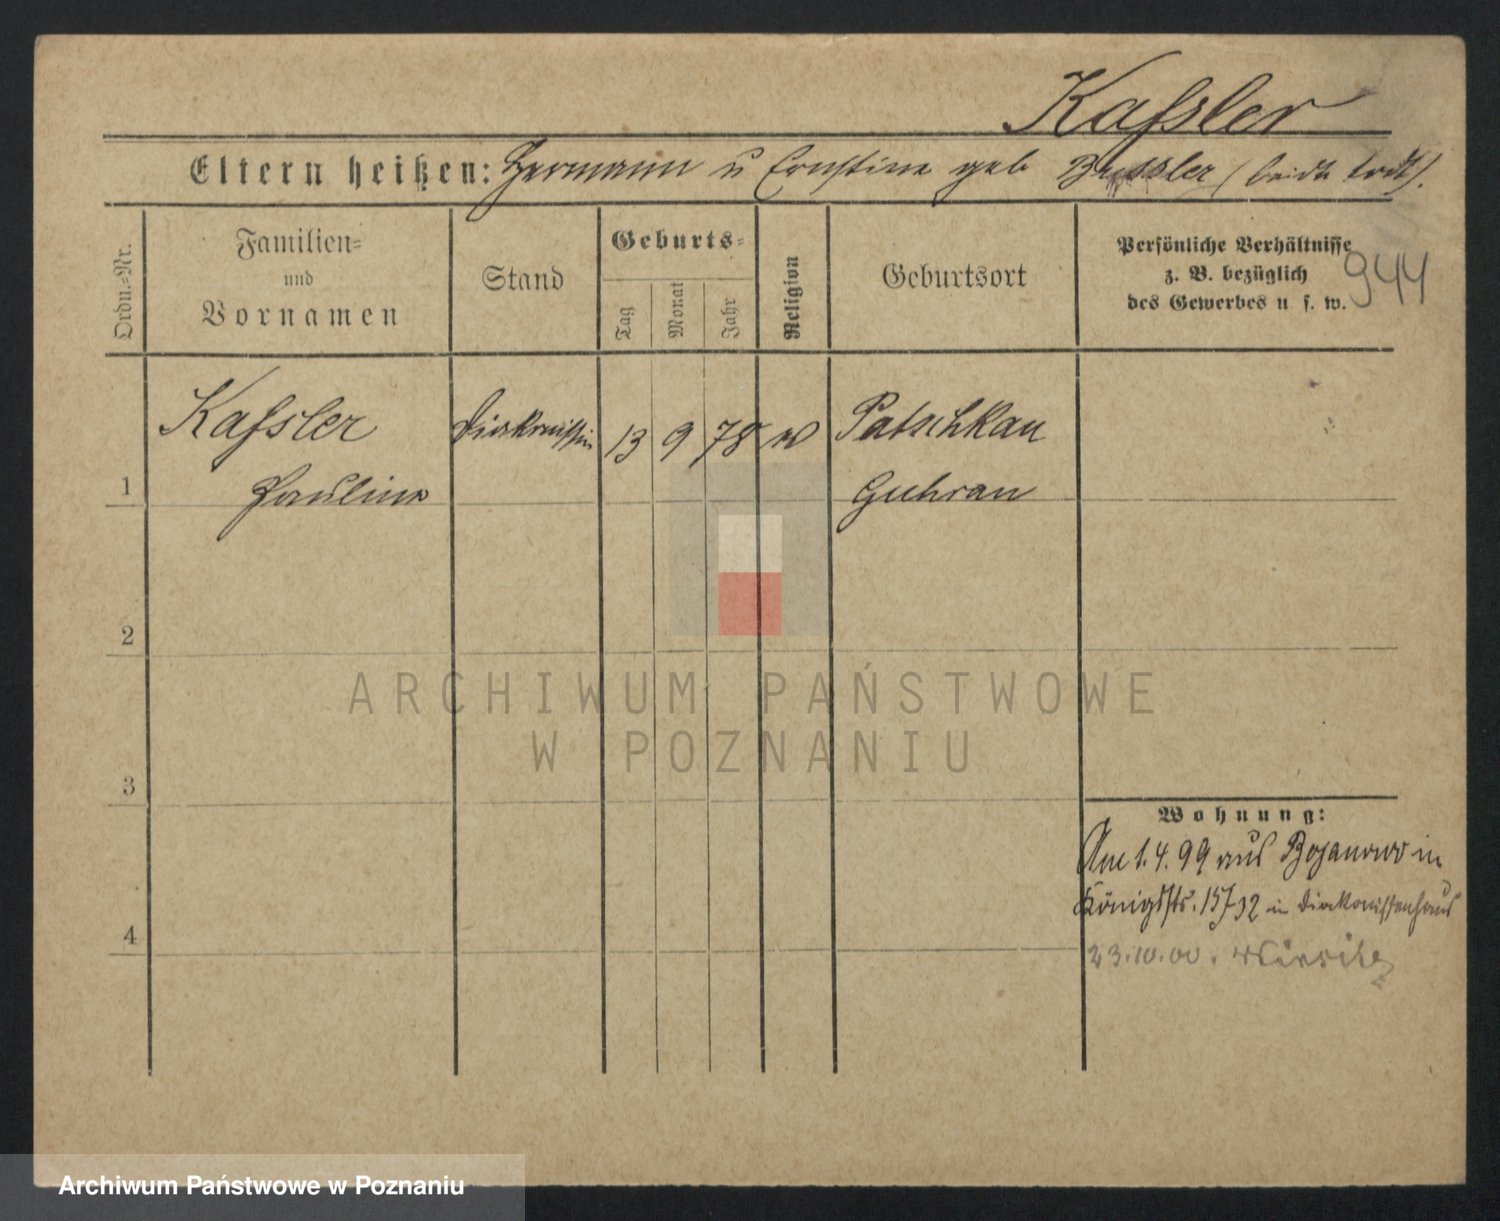 Kaſsler
Eltern heißen: Hermann u Ernstine geb (beide todt).
Ordn.-Nr.
Familien-
und
Vornamen
Stand
Geburts-
Tag
Monat
Jahr
Religion
Geburtsort
Persönliche Verhältnisse
z. B. bezüglich
des Gewerbes u s. w.
944
Kaſsler Diakonissin 13 9 78 Patschkau
1 Pauline Guhrau
2
ARCHIWUM PAŃSTWOWE
W POZNANIU
3
Wohnung:
Am 1.4.99 aus Bojanowo in
Königsstr. in Diakonissenhaus
4
23.10.00. Wirsitz
Archiwum Państwowe w Poznaniu